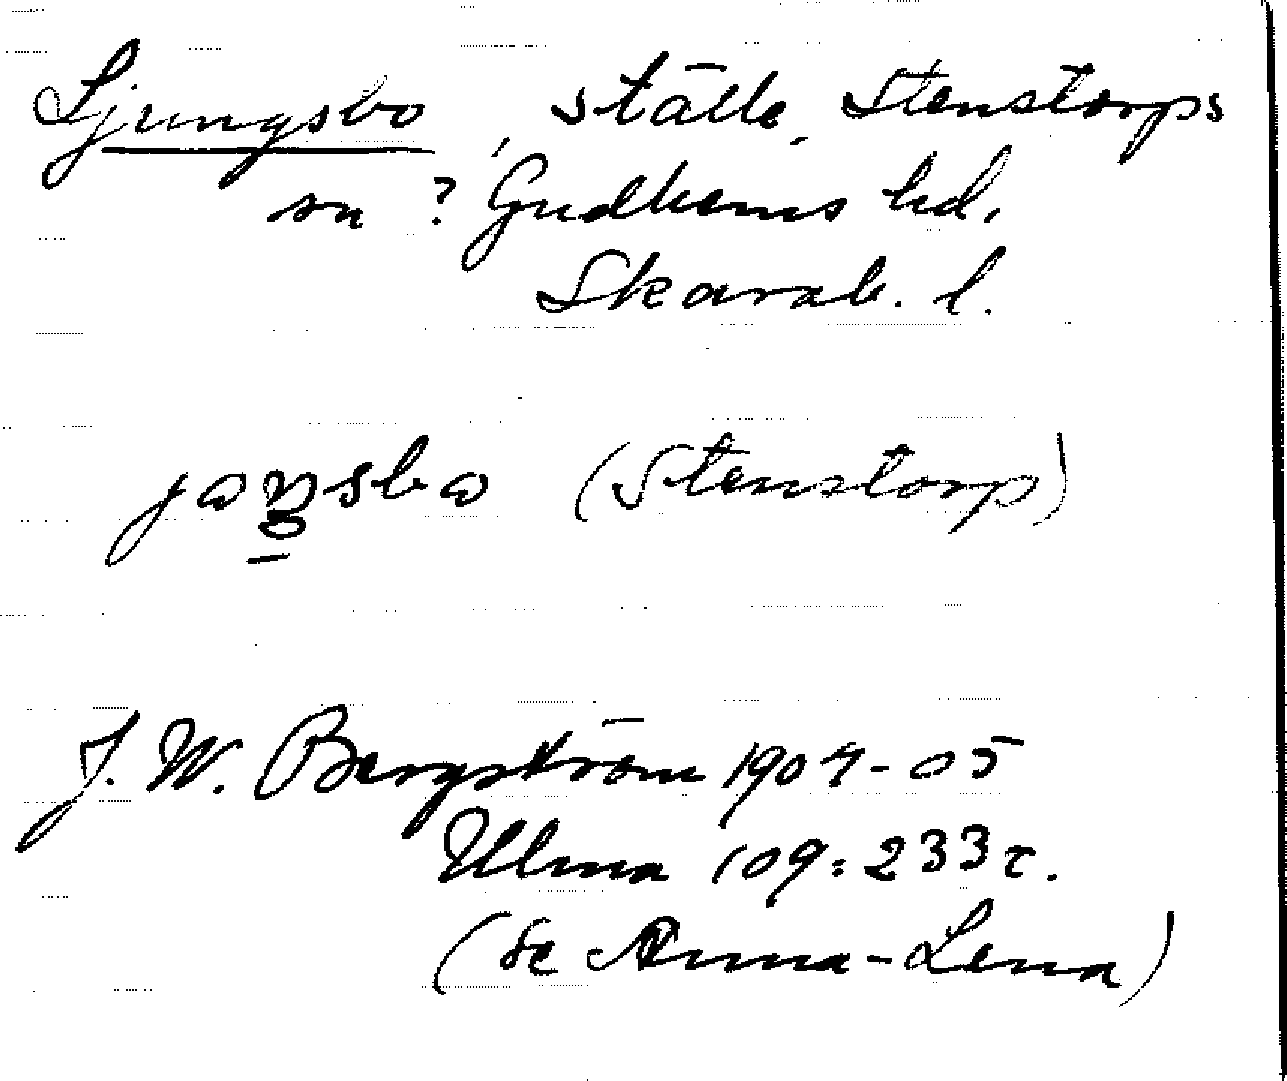 Ljungsbo, ställe, Stenstorps
sn ? Gudhems hd.
Skarab. l.
(Stenstorp)
J. W. Bergström 1904-05
Ulma 109:233 c.
(se Anna-Lena)